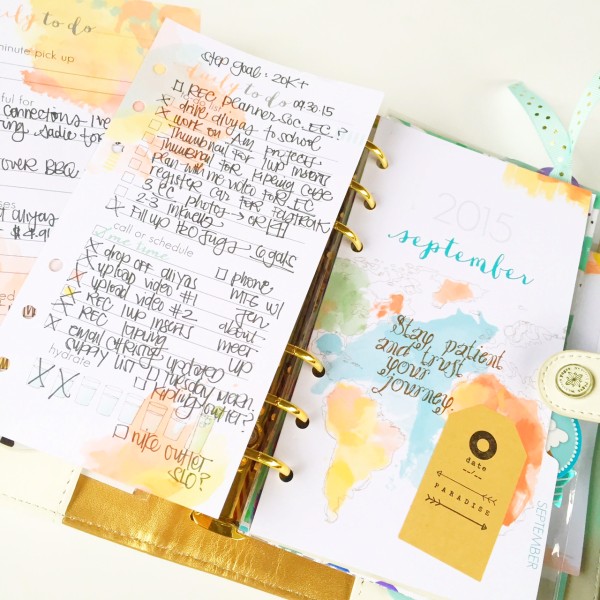 daily to do
minute pick up
ful for
connections I've
sadie for
over BBQ
step goal: 20K+
daily to do
to do
09.30.15
REC planner soc. EC.?
drive aliyas to school
work on Am project
Thumbnail for 1up inserts
Thumbnail for Kipling case
plan w/me video for EC
register car for fastrak
3 EC photos → or FH
2-3 intervals
Fill up H2O jugs → 6 gals
call or schedule
drop off aliyas
upload video #1
upload video #2
REC 1up inserts
REC Kipling
email offerings
supply list updated
phone
mtg w/
Jen
about
meet
up
hydrate
Tuesday morn.
Kipling outlet?
nike outlet
SLO?
2015
september
Stay patient
and trust
your
journey.
date
--/--
PARADISE
SEPTEMBER